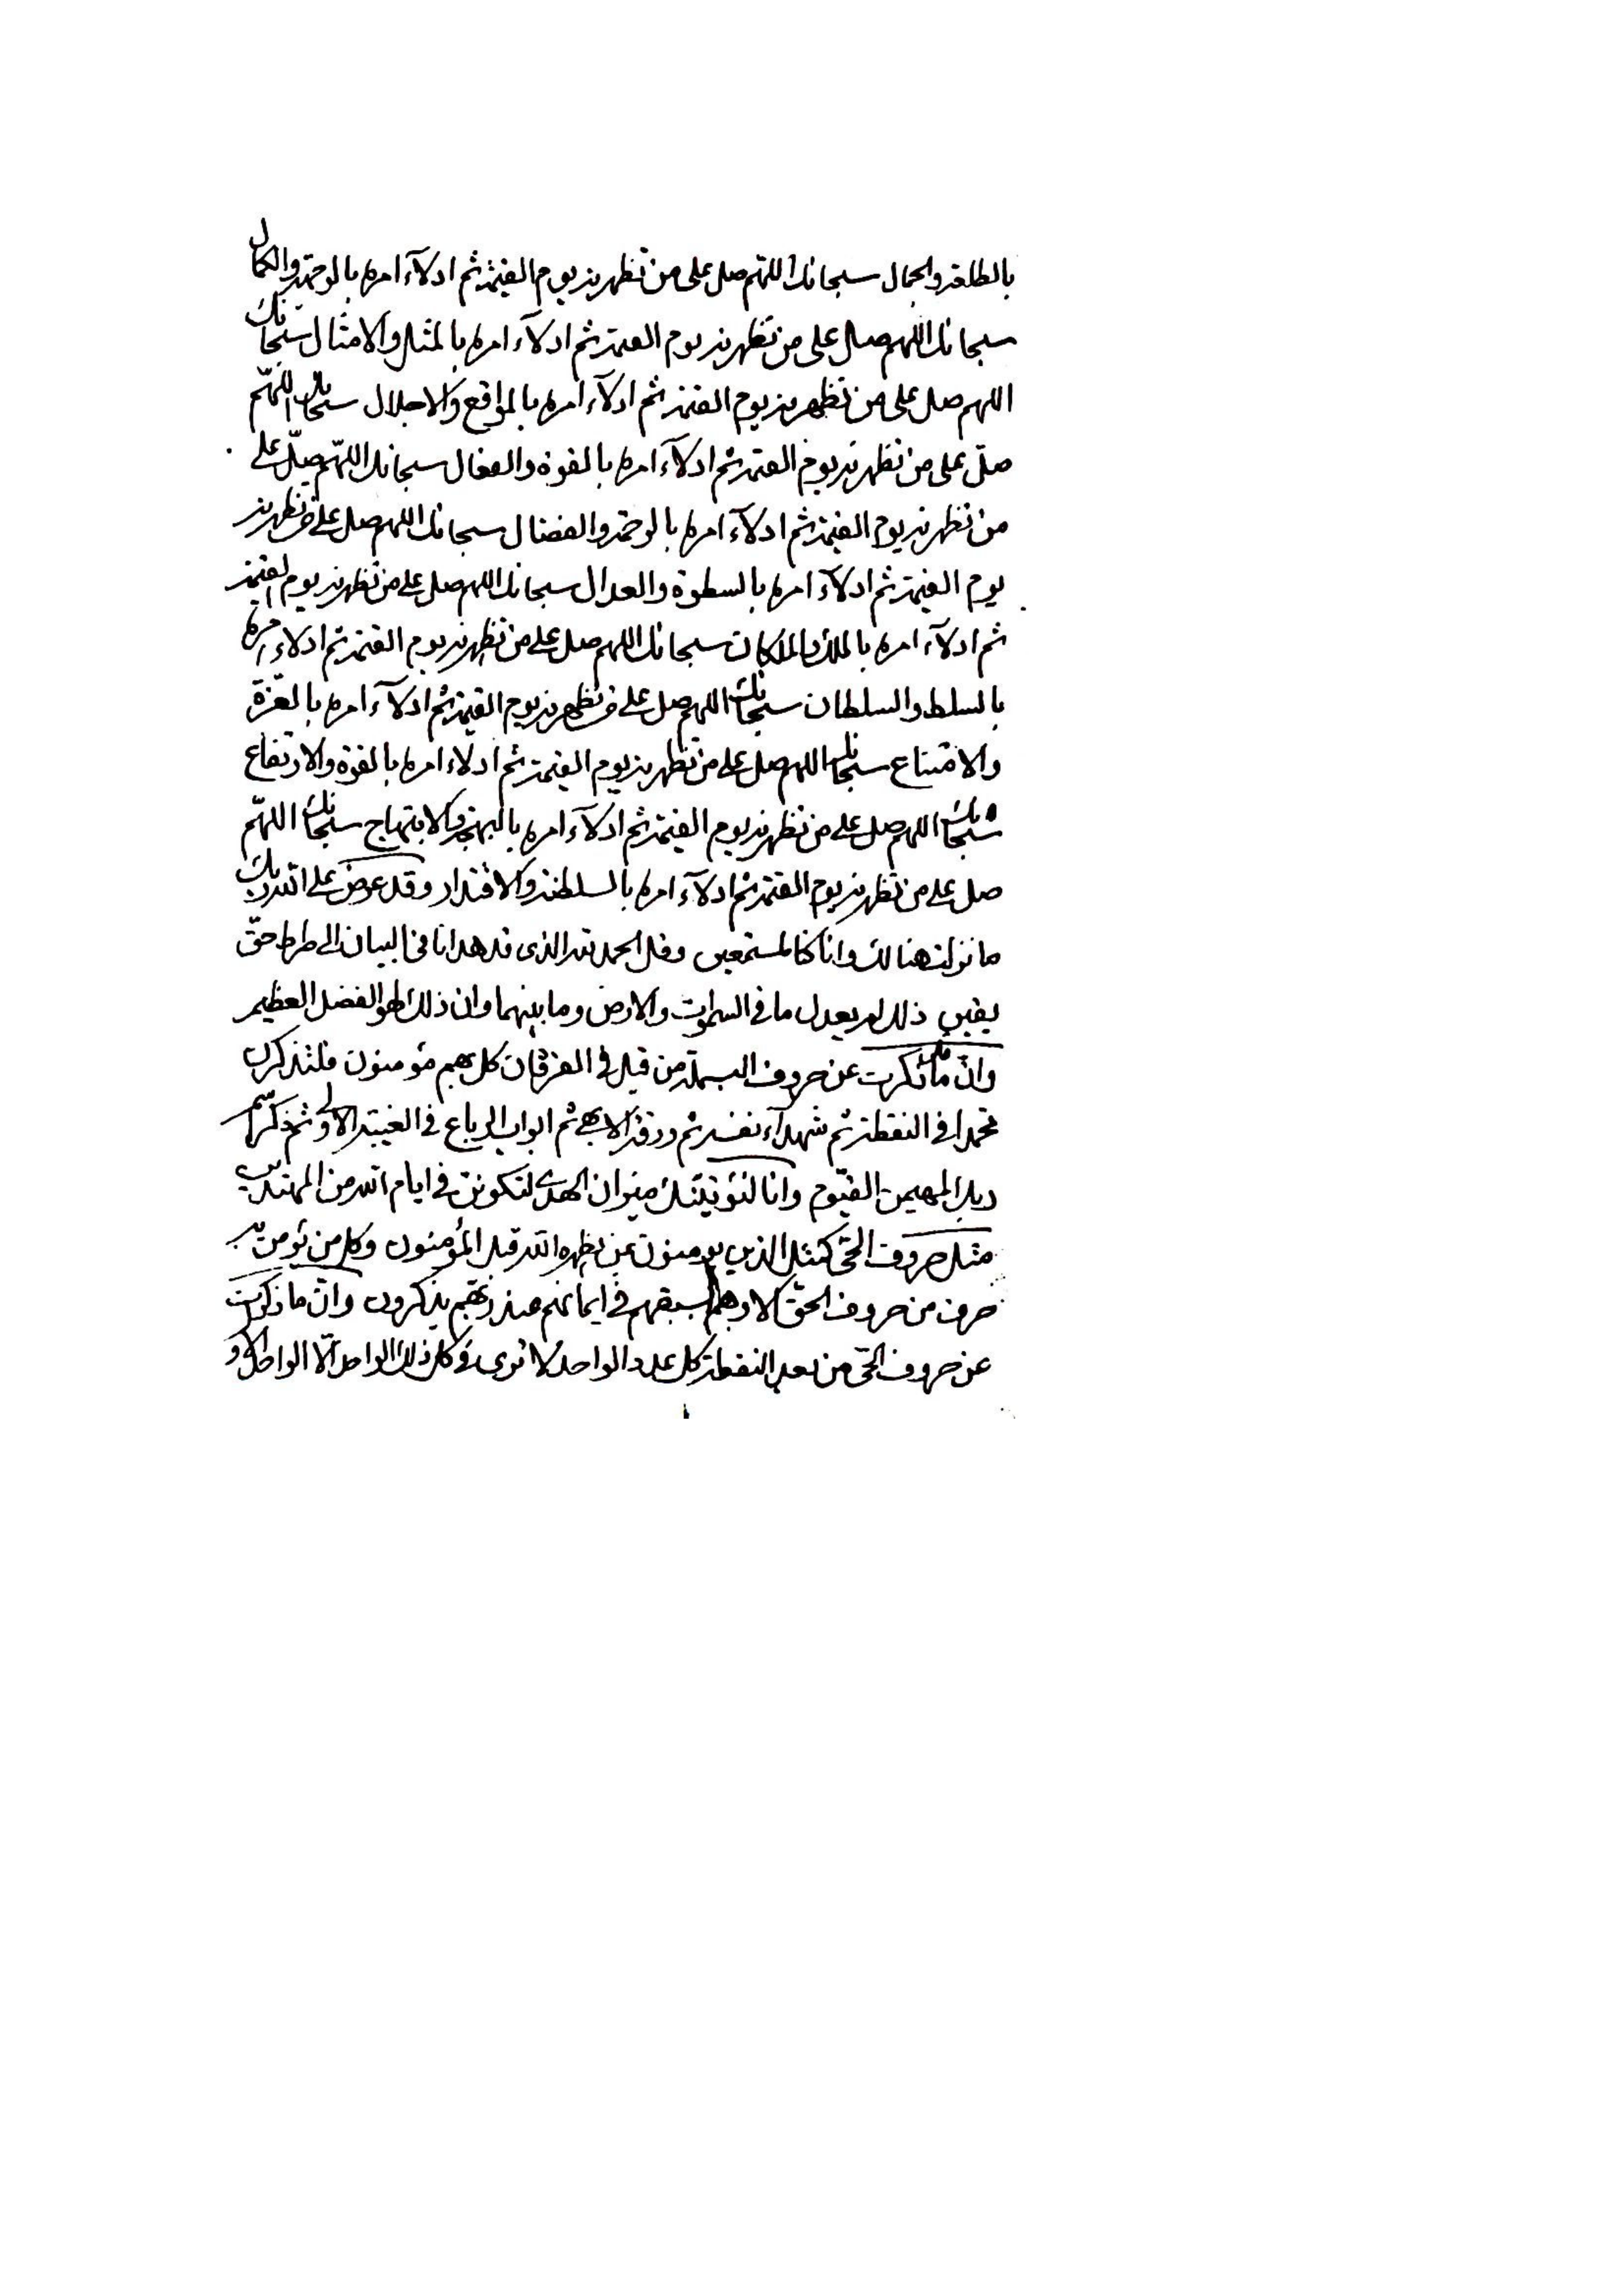 بالطلعة والجمال سبحانك اللهم صل على من تظهرنه يوم القيمة ثم ادلآء امره بالوجهة والكمال
سبحانك اللهم صل على من تظهرنه يوم القيمة ثم ادلآء امره بالمثل والامثال سبحانك
اللهم صل على من تظهرنه يوم القيمة ثم ادلآء امره بالمواقع والاجلال سبحانك اللهم
صل على من تظهرنه يوم القيمة ثم ادلآء امره بالقوة والفعال سبحانك اللهم صل على
من تظهرنه يوم القيمة ثم ادلآء امره بالرحمة والفضال سبحانك اللهم صل على من تظهرنه
يوم القيمة ثم ادلآء امره بالسطوة والعدال سبحانك اللهم صل على من تظهرنه يوم القيمة
ثم ادلآء امره بالملك والملكان سبحانك اللهم صل على من تظهرنه يوم القيمة ثم ادلاء امره
بالسلط والسلطان سبحانك اللهم صل على من تظهرنه يوم القيمة ثم ادلآء امره بالعزة
والامتناع سبحانك اللهم صل على من تظهرنه يوم القيمة ثم ادلاء امره بالقوة والارتفاع
سبحانك اللهم صل على من تظهرنه يوم القيمة ثم ادلآء امره بالبهجة والابتهاج سبحانك اللهم
صل على من تظهرنه يوم القيمة ثم ادلآء امره بالسلطنة والاقتدار وقد عرض على الله ربك
ما نزلت هنالك وانا كنا لمستمعين وقل الحمد لله الذى قد هدانا فى البيان الى صراط حق
يقين ذلك لم يعدل ما فى السموات والارض وما بينهما وان ذلك لهو الفضل العظيم
وان ما ذكرت عن حروف البسملة من قبل فى الفرقان كل بهم مؤمنون فلتذكرن
محمدا فى النقطة ثم شهدآء نفسه ثم ورقة الابهى ثم ابواب الرباع فى الغيبة الاولى ثم ذكر اسم
ربك المهيمن القيوم وانا لنؤتينك ميزان الهدى لتكونن فى ايام الله من المهتدين
مثل حروف الحى كمثل الذين يؤمنون بمن يظهره الله قبل المؤمنون وكل من يؤمن به
حرف من حروف الحق الا وهم اسبقهم فى ايمانهم عند ربهم يذكرون وان ما ذكرت
عن حروف الحى من بعد النقطة كل عدد الواحد لا ترى فى كل ذلك الواحد الا الواحد الاول